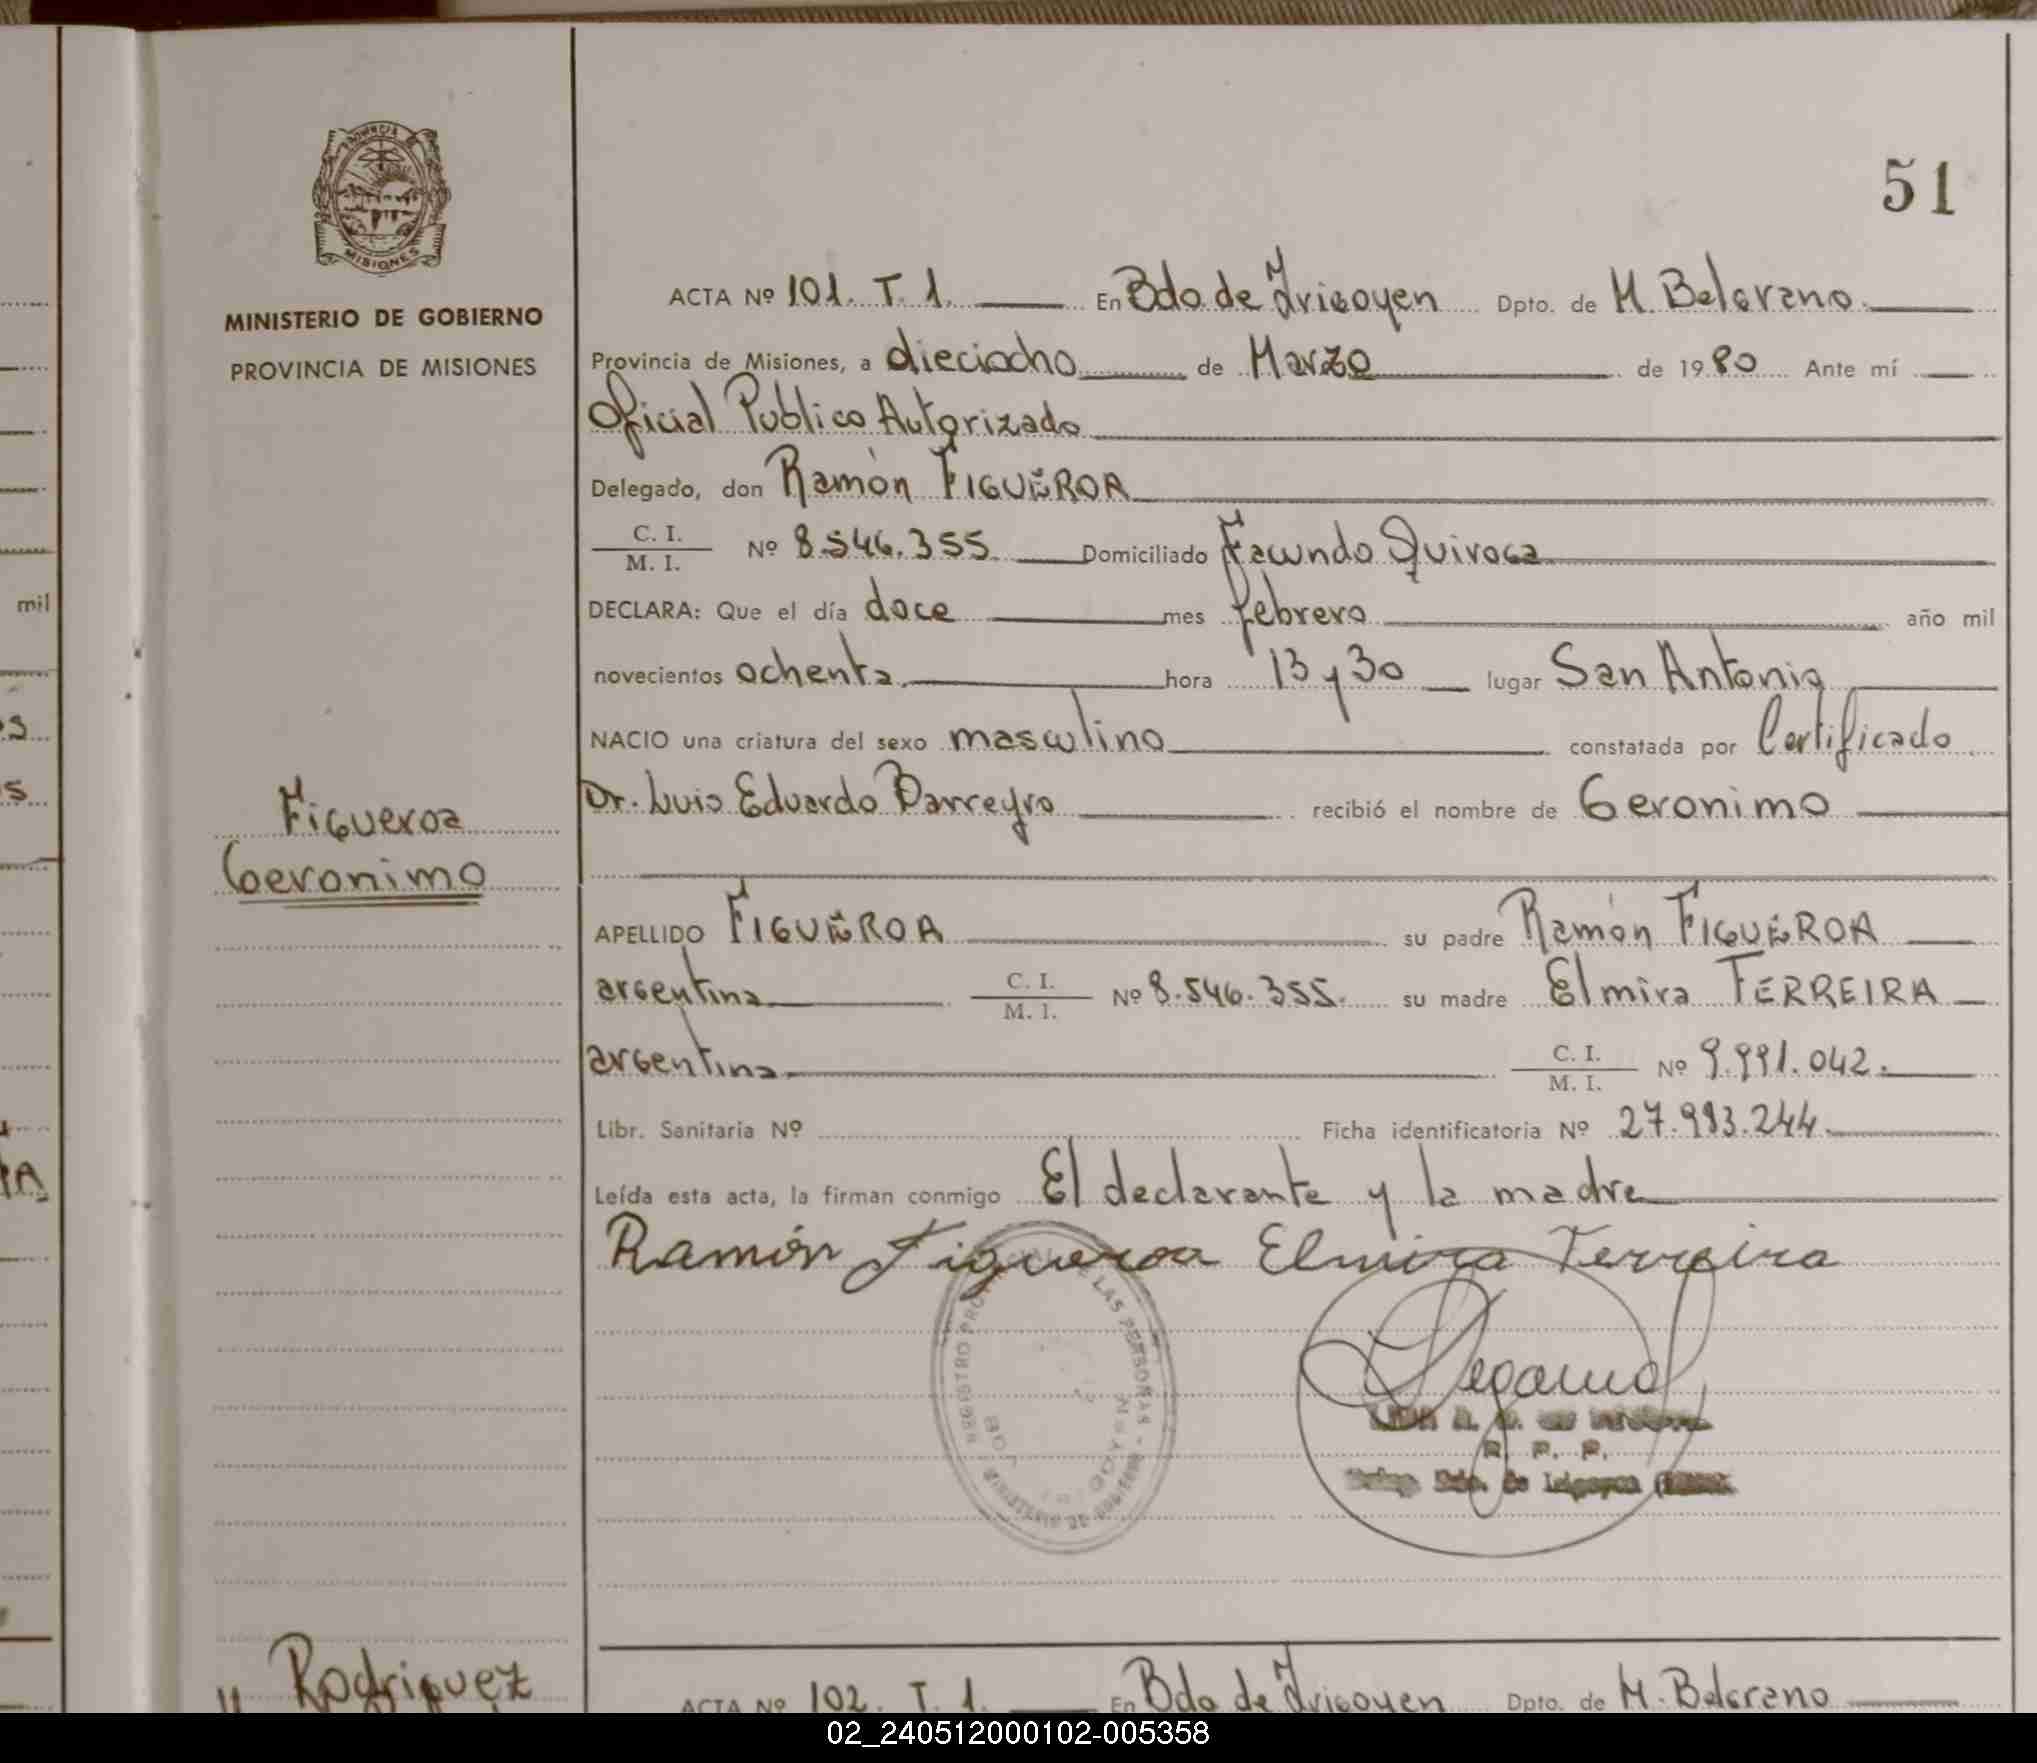 51
PROVINCIA
MISIONES
MINISTERIO DE GOBIERNO
PROVINCIA DE MISIONES
ACTA Nº 101. T. 1. En Bdo de Irigoyen Dpto. de M. Belgrano
Provincia de Misiones, a dieciocho de Marzo de 1980 Ante mí
Oficial Publico Autorizado
Delegado, don Ramón FIGUEROA
C. I.
M. I.
Nº 8.546.355 Domiciliado Facundo Quiroga
DECLARA: Que el día doce mes febrero año mil
novecientos ochenta hora 13 y 30 lugar San Antonio
NACIO una criatura del sexo masculino constatada por Certificado
Dr. Luis Eduardo Barreyro recibió el nombre de Geronimo
Figueroa
Geronimo
APELLIDO FIGUEROA su padre Ramón FIGUEROA
argentina C. I. M. I. Nº 8.546.355. su madre Elmira FERREIRA
argentina C. I. M. I. Nº 9.991.042.
Libr. Sanitaria Nº Ficha identificatoria Nº 27.983.244
Leída esta acta, la firman conmigo El declarante y la madre
Ramón Figueroa Elmira Ferreira
LAS PERSONAS
R. P. P.
de Irigoyen
Rodriguez
ACTA Nº 102. T. 1. En Bdo de Irigoyen Dpto. de M. Belgrano
mil
02_240512000102-005358